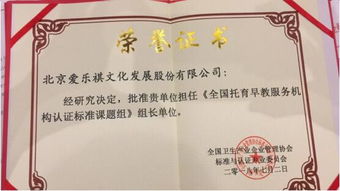 荣誉证书
北京爱乐祺文化发展股份有限公司：
经研究决定，批准贵单位担任《全国托育早教服务机
构认证标准课题组》组长单位。
全国卫生产业企业管理协会
标准与认证专业委员会
二〇一八年七月二日